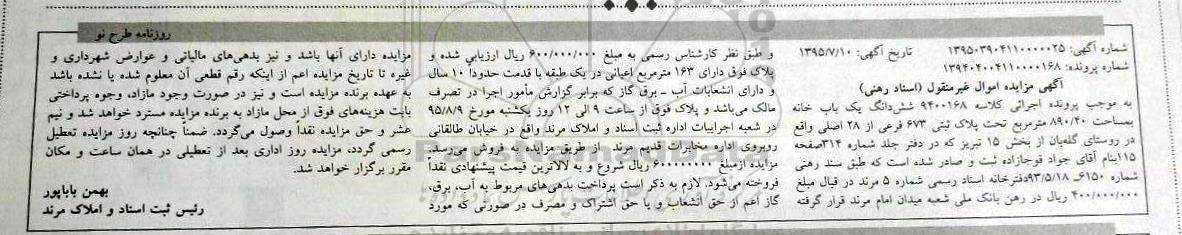 روزنامه طرح نو
شماره آگهی: ۱۳۹۵۰۳۹۰۴۱۱۰۰۰۰۰۲۵ تاریخ آگهی: ۱۳۹۵/۷/۱۰
شماره پرونده: ۱۳۹۴۰۴۰۰۴۱۱۰۰۰۰۱۶۸
آگهی مزایده اموال غیرمنقول (اسناد رهنی)
به موجب پرونده اجرائی کلاسه ۹۴۰۰۱۶۸ ششدانگ یک باب خانه
بمساحت ۸۹۰/۴۰ مترمربع تحت پلاک ثبتی ۶۷۳ فرعی از ۲۸ اصلی واقع
در روستای گله‌بان از بخش ۱۵ تبریز که در دفتر جلد شماره ۳۱۴صفحه
۱۱۵بنام آقای جواد قوجازاده ثبت و صادر شده است که طبق سند رهنی
شماره ۶۱۵۰ـ ۹۳/۵/۱۸دفترخانه اسناد رسمی شماره ۵ مرند در قبال مبلغ
۴۰۰/۰۰۰/۰۰۰ ریال در رهن بانک ملی شعبه میدان امام مرند قرار گرفته
و طبق نظر کارشناس رسمی به مبلغ ۶۰۰/۰۰۰/۰۰۰ ریال ارزیابی شده و
پلاک فوق دارای ۱۶۳ مترمربع اعیانی در یک طبقه با قدمت حدوداً ۱۰ سال
و دارای انشعابات آب ـ برق گاز که برابر گزارش مأمور اجرا در تصرف
مالک می‌باشد و پلاک فوق از ساعت ۹ الی ۱۲ روز یکشنبه مورخ ۹۵/۸/۹
در شعبه اجراییات اداره ثبت اسناد و املاک مرند واقع در خیابان طالقانی
روبروی اداره مخابرات قدیم مرند از طریق مزایده به فروش می‌رسد.
مزایده ازمبلغ ۶۰۰۰۰۰۰۰۰ ریال شروع و به لالاترین قیمت پیشنهادی نقداً
فروخته می‌شود. لازم به ذکر است پرداخت بدهی‌های مربوط به آب، برق،
گاز اعم از حق انشعاب و یا حق اشتراک و مصرف در صورتی که مورد
مزایده دارای آنها باشد و نیز بدهی‌های مالیاتی و عوارض شهرداری و
غیره تا تاریخ مزایده اعم از اینکه رقم قطعی آن معلوم شده یا نشده باشد
به عهده برنده مزایده است و نیز در صورت وجود مازاد، وجوه پرداختی
بابت هزینه‌های فوق از محل مازاد به برنده مزایده مسترد خواهد شد و نیم
عشر و حق مزایده نقداً وصول می‌گردد. ضمناً چنانچه روز مزایده تعطیل
رسمی گردد، مزایده روز اداری بعد از تعطیلی در همان ساعت و مکان
مقرر برگزار خواهد شد.
بهمن باباپور
رئیس ثبت اسناد و املاک مرند